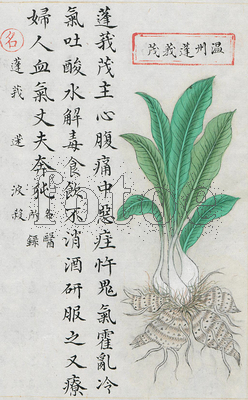 温州蓬莪茂
蓬莪茂主心腹痛中惡疰忤鬼氣霍亂冷
氣吐酸水解毒食飲不消酒研服之又療
婦人血氣丈夫奔
名醫
所錄
名
蓬莪
波殺